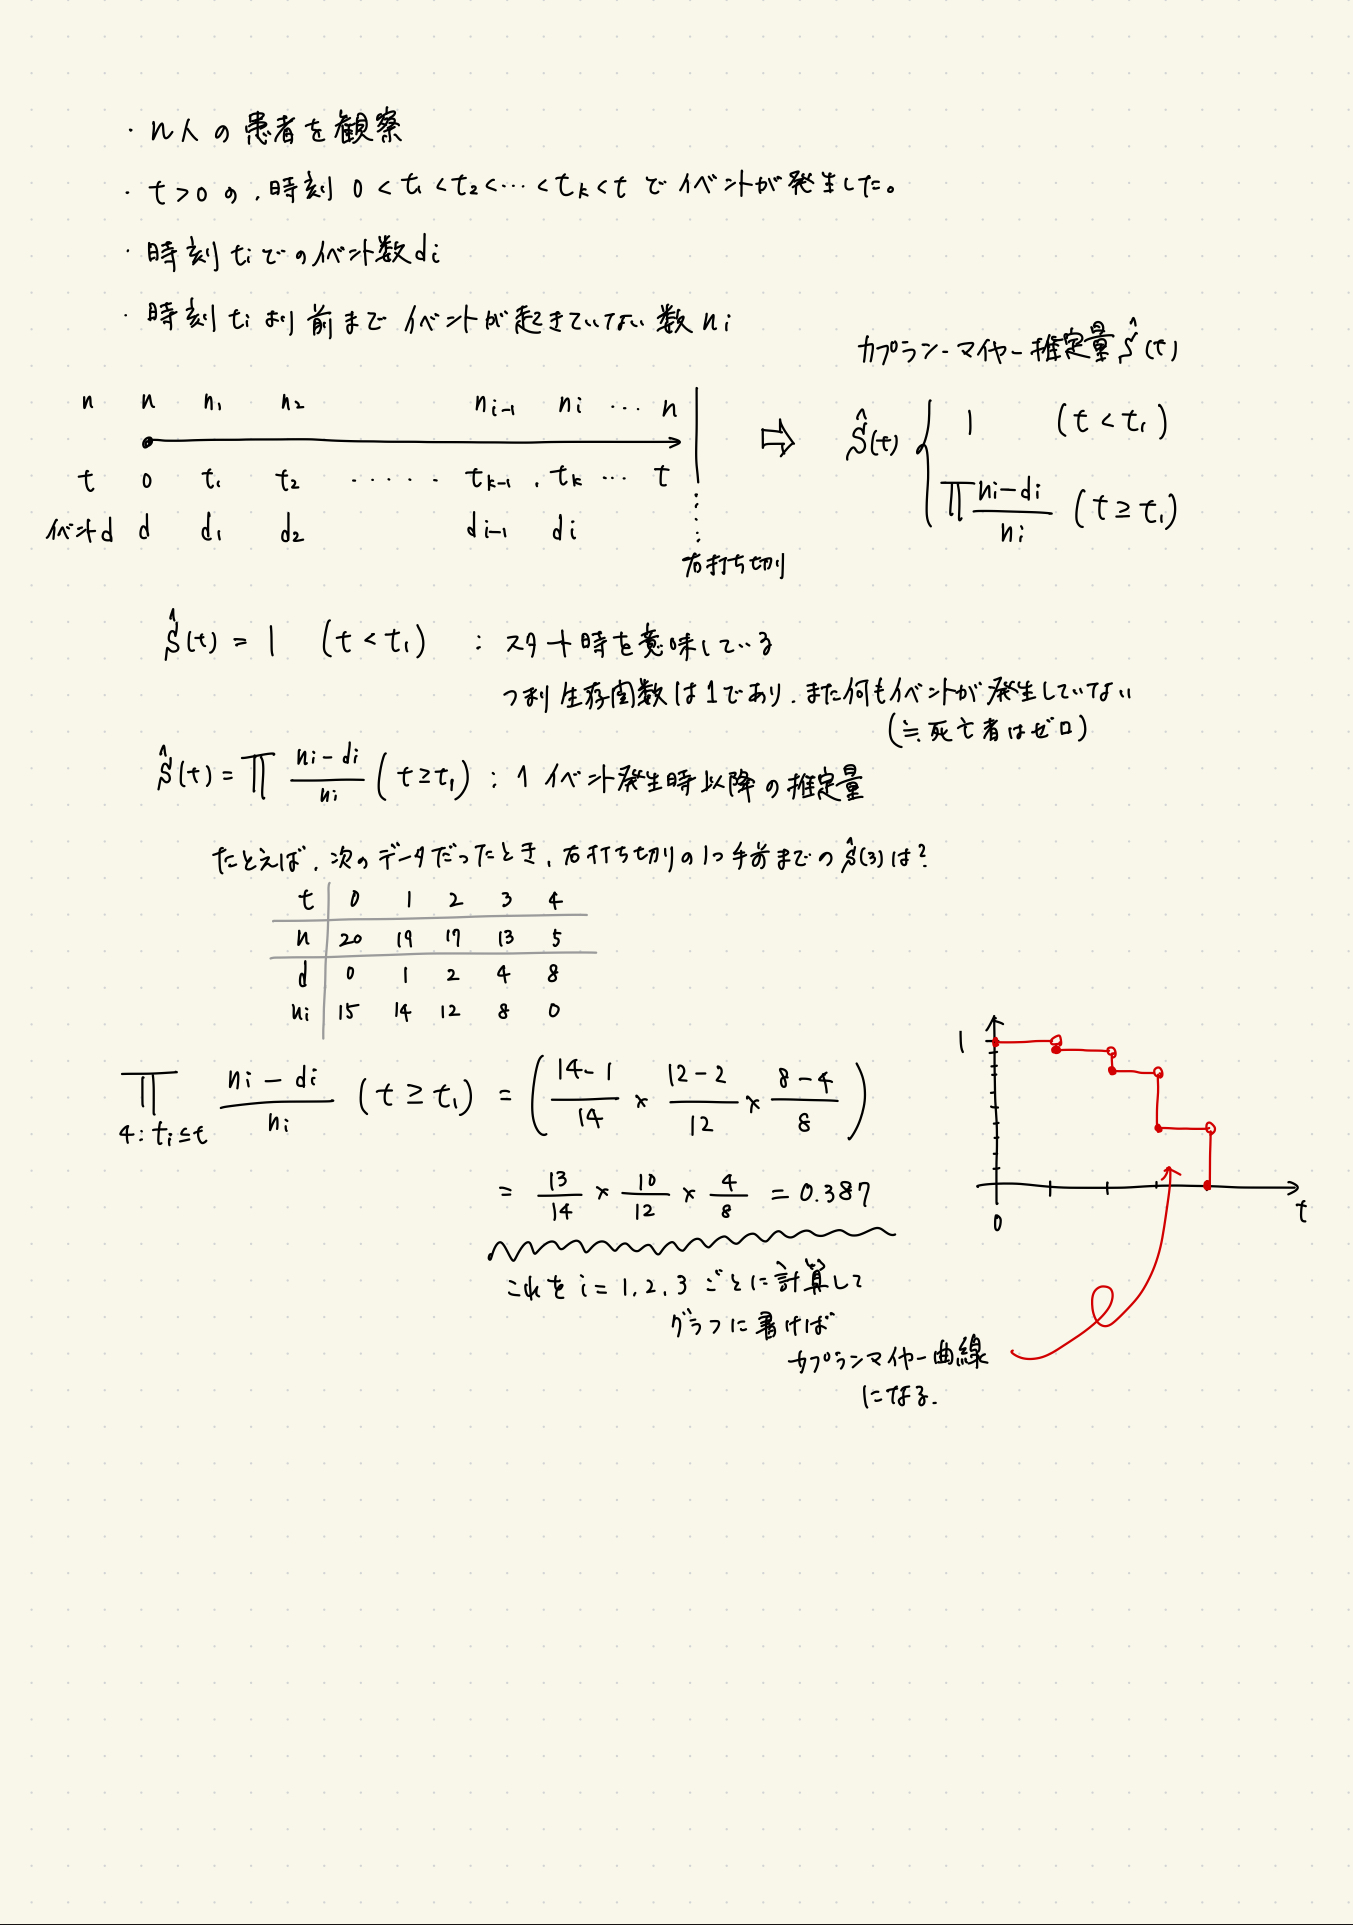 ・n人の患者を観察
・t>0の、時刻 0<t₁<t₂<…<tₖ<t でイベントが発生した。
・時刻tᵢでのイベント数dᵢ
・時刻tᵢより前までイベントが起きていない数nᵢ
カプラン-マイヤー推定量Ŝ(t)
n n n₁ n₂ nᵢ₋₁ nᵢ … n
t 0 t₁ t₂ …… tₖ₋₁ . tₖ … t
イベントd d d₁ d₂ dᵢ₋₁ dᵢ
右打ち切り
⇨ Ŝ(t) { 1 (t<t₁)
∏ (nᵢ-dᵢ)/nᵢ (t≥t₁)
Ŝ(t) = 1 (t<t₁) : スタート時を意味している
つまり生存関数は1であり、また何もイベントが発生していない
(≒死亡者はゼロ)
Ŝ(t) = ∏ (nᵢ-dᵢ)/nᵢ (t≥t₁) : 1イベント発生時以降の推定量
たとえば、次のデータだったとき、右打ち切りの1つ手前までのŜ(3)は?
t 0 1 2 3 4
n 20 19 17 13 5
d 0 1 2 4 8
nᵢ 15 14 12 8 0
∏ (nᵢ-dᵢ)/nᵢ (t≥t₁) = ((14-1)/14 × (12-2)/12 × (8-4)/8)
4: tᵢ≤t
= 13/14 × 10/12 × 4/8 = 0.387
これをi=1,2,3ごとに計算して
グラフに書けば
カプランマイヤー曲線
になる.
1
0
t